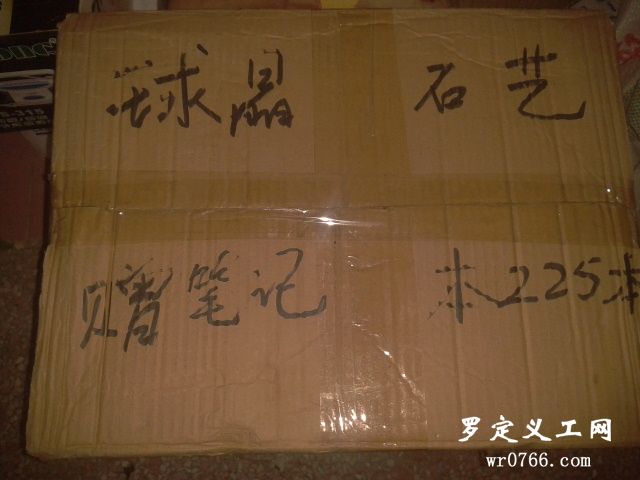 球晶 石艺
赠笔记 本225本
罗定义工网
wr0766.com